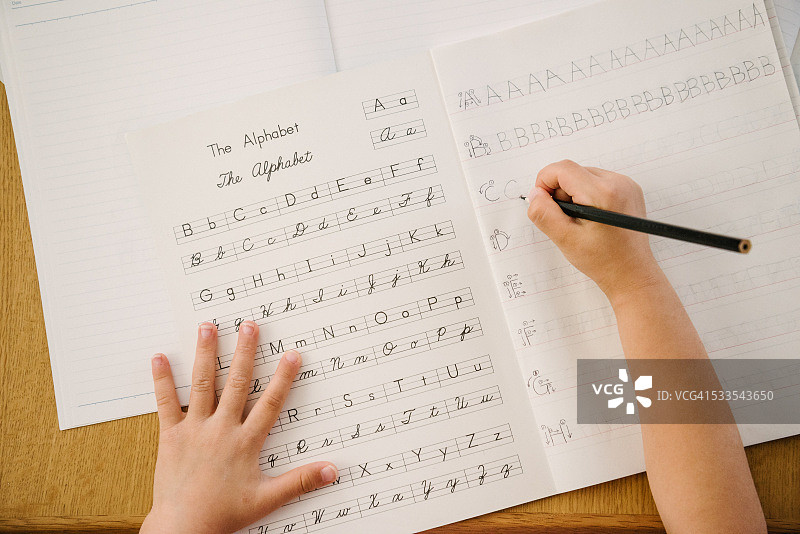 The Alphabet
The Alphabet
A a
A a
B b C c D d E e F f
B b C c D d E e F f
G g H h I i J j K k
g H h I i J j K k
L M m N n O o P p
m N n O o P p
R r S s T t U u
R r S s T t U u
X x Y y Z z
V v W w X x Y y Z z
A A A A A A A A A A A A A A A
B B B B B B B B B B B B B B B B B B B
C C
D
E
F
G
H
VCG
VCG.COM
ID:VCG41533543650